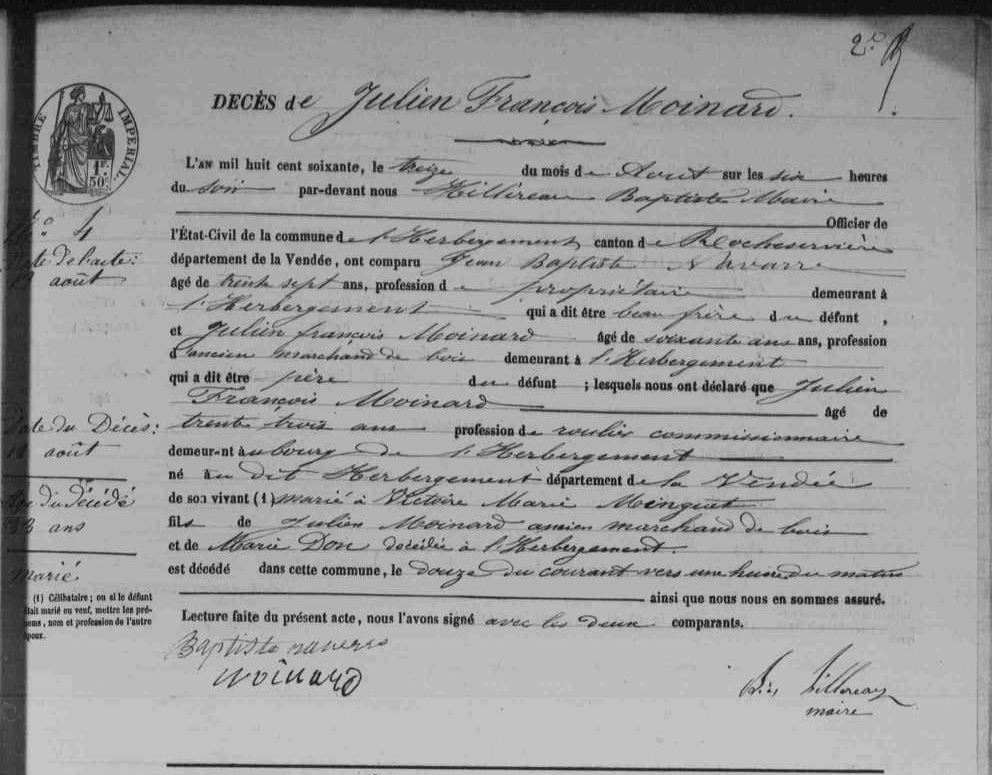 2e
DÉCÈS de Julien François Moinard.
TIMBRE IMPERIAL
1 F.
50 c.
L'AN mil huit cent soixante, le treize du mois de Aout sur les six heures
du soir par-devant nous Hillereau Baptiste Maire
Officier de
l'État-Civil de la commune de l'Herbergement canton de Rocheservière
département de la Vendée, ont comparu Jean Baptiste Navarre
âgé de trente sept ans, profession de propriétaire demeurant à
l'Herbergement qui a dit être beau frère du défunt,
et Julien françois Moinard âgé de soixante ans ans, profession
d'ancien marchand de bois demeurant à l'Herbergement
qui a dit être père du défunt ; lesquels nous ont déclaré que Julien
François Moinard âgé de
trente trois ans profession de roulier commissionnaire
demeurant au bourg de l'Herbergement
né au dit Herbergement département de la Vendée
de son vivant (1) marié à Victoire Marie Minguet
fils de Julien Moinard ancien marchand de bois
et de Marie Doré décédée à l'Herbergement.
est décédé dans cette commune, le douze du courant vers une heure du matin
ainsi que nous nous en sommes assuré.
Lecture faite du présent acte, nous l'avons signé avec les deux comparants.
Baptiste naverre
moinard
Bte hillereau
maire
No 4
Date de l'acte:
août
Date du Décès:
août
Age du décédé
33 ans
marié
(1) Célibataire ; ou si le défunt
était marié ou veuf, mettre les pré-
noms, nom et profession de l'autre
époux.